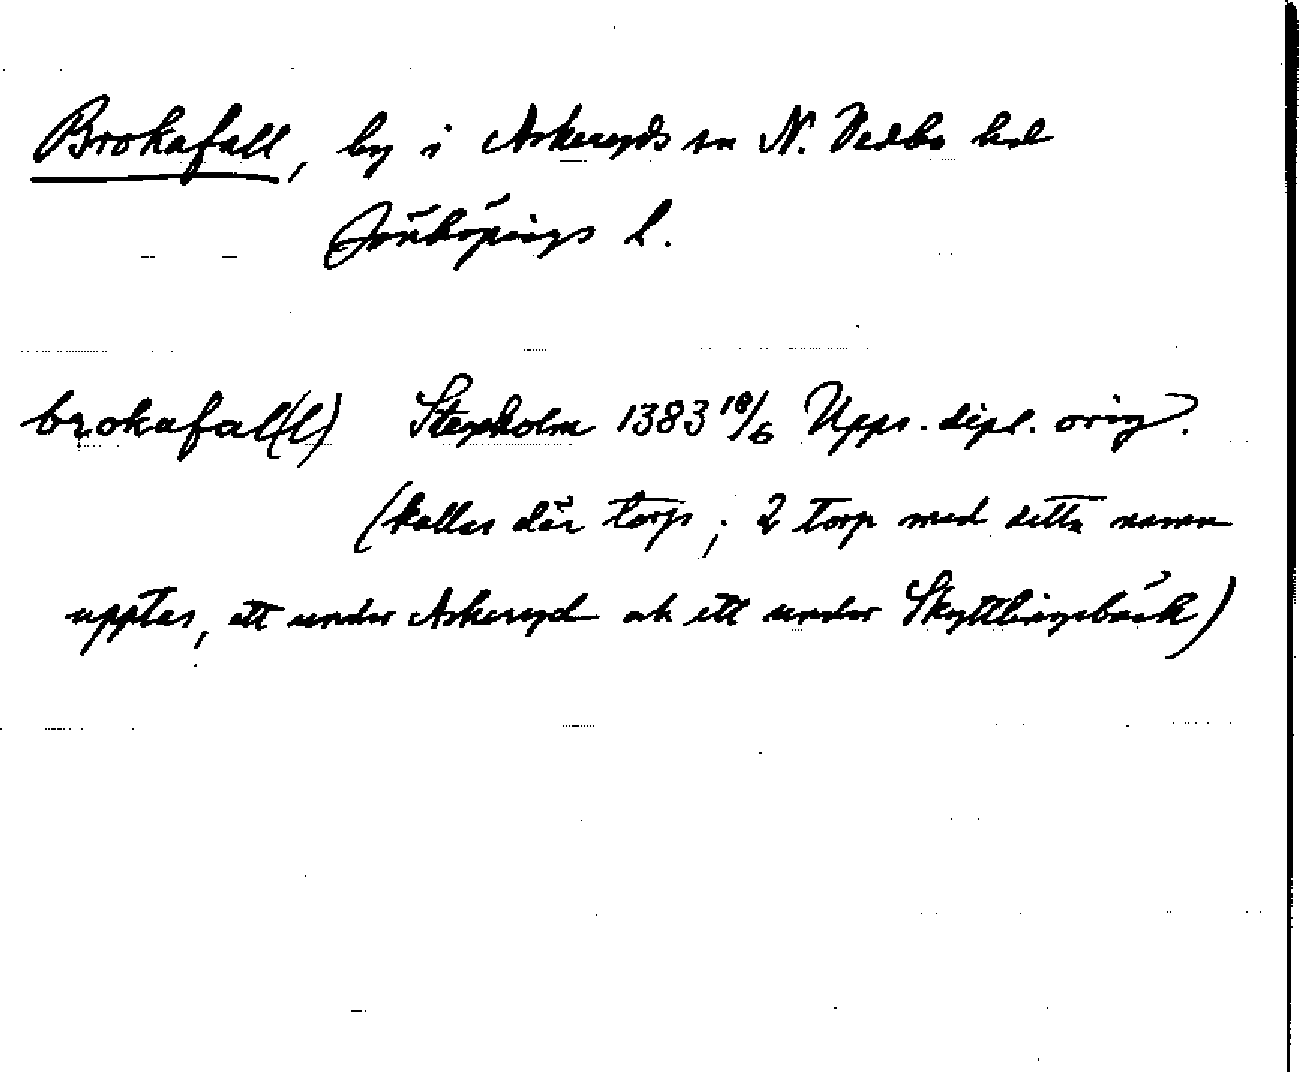 Brokafall, by i Askeryds sn N. Vedbo hd
Jönköpings l.
brokafal(l) Stegholm 1383 10/6 Upps. dipl. orig.
(kallas där torp; 2 torp med detta namn
upptas, ett under Askeryd ok ett under Skyttlingebäck)